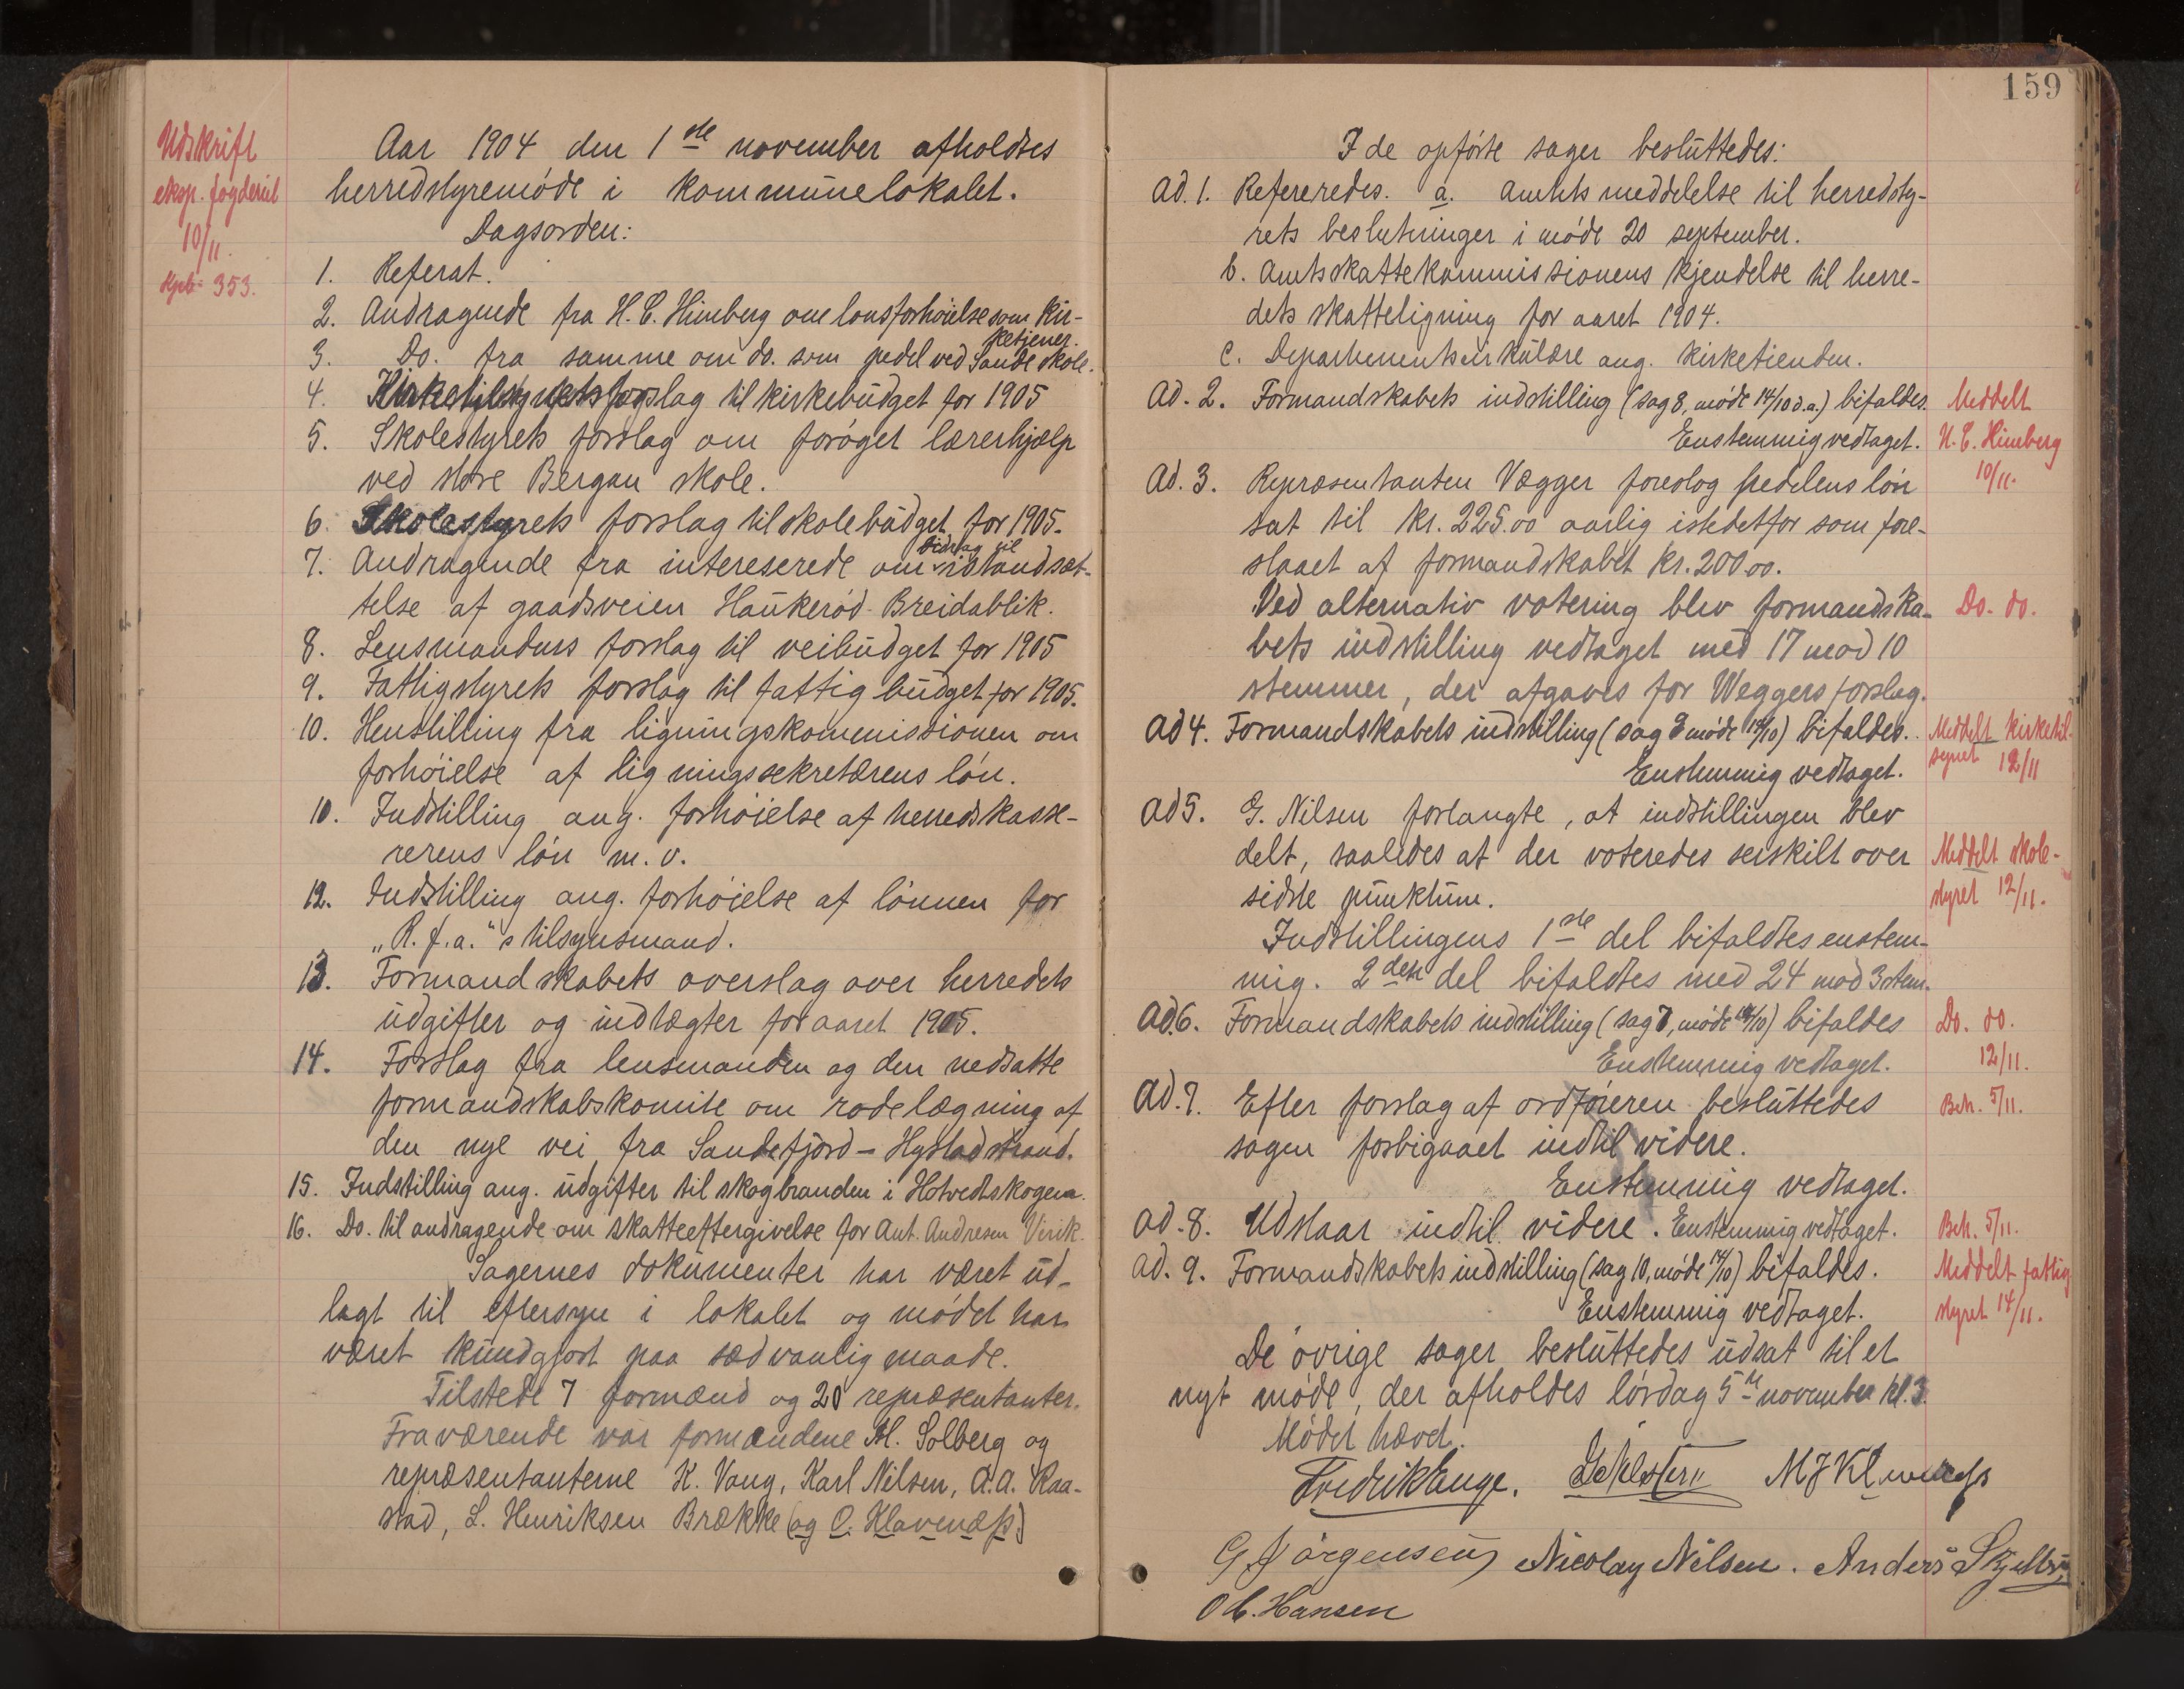 Udskrift
eksp. fogderiet
10/11.
Kpb. 353.
Aar 1904 den 1ste november afholdtes
herredstyremöde i kommunelokalet.
Dagsorden:
1. Referat.
2. Andragende fra H. C. Himberg om lönsforhöielse som kir-
ketjener.
3. Do. fra samme om do. som pedel ved Sande skole.
4. Kirketilsynets forslag til kirkebudget for 1905
5. Skolestyrets forslag om foröget lærerhjælp
ved store Bergan skole.
6. Skolestyrets forslag til skolebudget for 1905.
7. Andragende fra intereserede om bidrag til istandsæt-
telse af gaadsveien Haukeröd-Breidablik.
8. Lensmandens forslag til veibudget for 1905
9. Fattigstyrets forslag til fattigbudget for 1905.
10. Henstilling fra ligningskommissionen om
forhöielse af ligningssekretærens lön.
10. Indstilling ang. forhöielse af herredskasse-
rerens lön m. v.
12. Indstilling ang. forhöielse af lönnen for
"R. f. a."s tilsynsmand.
13. Formandskabets overslag over herredets
udgifter og indtægter for aaret 1905.
14. Forslag fra lensmanden og den nedsatte
formandskabskomite om rodelægning af
den nye vei fra Sandefjord - Hystadstrand.
15. Indstilling ang. udgifter til skogbranden i Hotvedtskogen.
16. Do. til andragende om skatteeftergivelse for Ant. Andresen Virik.
Sagernes dokumenter har været ud-
lagt til eftersyn i lokalet og mödet har
været kundgjort paa sædvanlig maade.
Tilstede 7 formænd og 20 repræsentanter.
Fraværende var formændene M. Solberg og
repræsentanterne K. Vang, Karl Nilsen, A. A. Raa-
stad, L. Henriksen Brække (og C. Klavenæss)
159
I de opförte sager besluttedes:
ad. 1. Refereredes. a. Amtets meddelelse til herredsty-
rets beslutninger i möde 20 september.
b. Amtsskattekommissionens kjendelse til herre-
dets skatteligning for aaret 1904.
c. Departementscirkulære ang. kirketienden.
ad. 2. Formandskabets indstilling (sag 8, möde 14/10 d.a.) bifaldes.
Enstemmig vedtaget.
Meddelt
H. C. Himberg
10/11.
ad. 3. Repræsentanten Vægger foreslog pedelens lön
sat til kr. 225.00 aarlig istedetfor som fore-
slaaet af formandskabet kr. 200.00.
Ved alternativ votering blev formandska-
bets indstilling vedtaget med 17 mod 10
stemmer, der afgaves for Weggers forslag.
Do. do.
ad 4. Formandskabets indstilling (sag 9 möde 14/10) bifaldes.
Enstemmig vedtaget.
Meddelt kirketil-
synet 12/11
ad 5. G. Nilsen forlangte, at indstillingen blev
delt, saaledes at der voteredes serskilt over
sidste punktum.
Indstillingens 1ste del bifaldtes enstem-
mig. 2den del bifaldtes med 24 mod 3 stem.
Meddelt skole-
styret 12/11.
ad. 6. Formandskabets indstilling (sag 7, möde 14/10) bifaldes
Enstemmig vedtaget.
Do. do.
12/11.
ad. 7. Efter forslag af ordföreren besluttedes
sagen forbigaaet indtil videre.
Enstemmig vedtaget.
Beh. 5/11.
ad. 8. Udstaar indtil videre. Enstemmig vedtaget.
Beh. 5/11.
ad. 9. Formandskabets indstilling (sag 10, möde 14/10) bifaldes.
Enstemmig vedtaget.
Meddelt fattig
styret 14/11.
De övrige sager besluttedes udsat til et
nyt möde, der afholdes lördag 5te november kl. 3.
Mödet hævet.
Fredrik Lange. M J Klavenæss
G Jörgensen Nicolay Nilsen. Anders Skjelbr
O C. Hansen